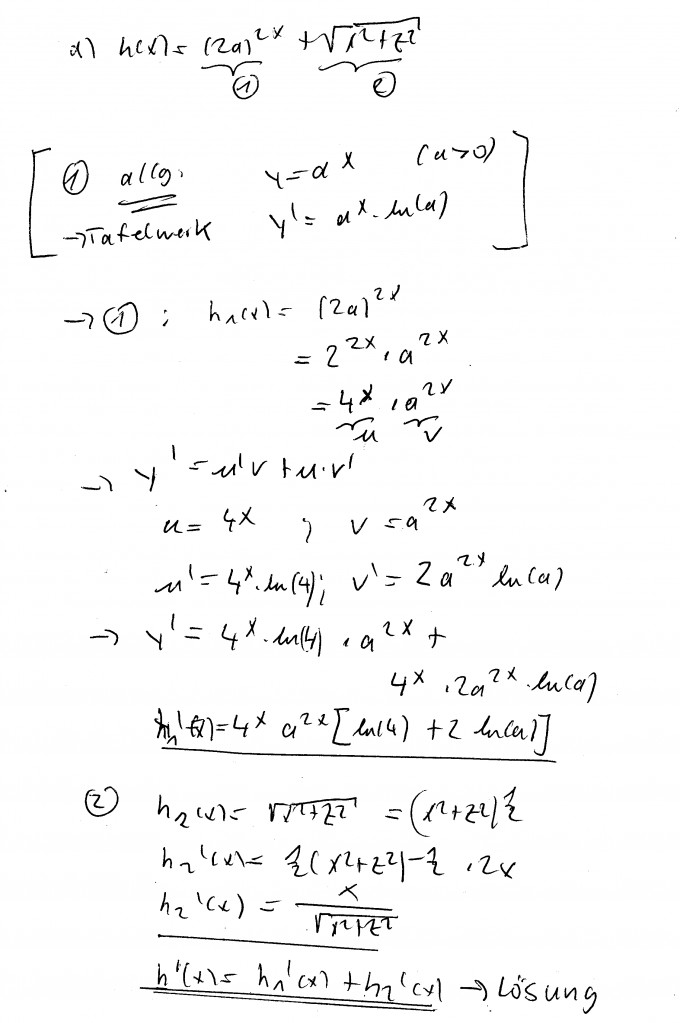 d) h(x) = (2a)^{2x} + √(x²+z²)
① ②
① allg. y = a^x (a>0)
→ Tafelwerk y' = a^x · ln(a)
→ ① ; h₁(x) = (2a)^{2x}
= 2^{2x} · a^{2x}
= 4^x · a^{2x}
u v
→ y' = u'v + u·v'
u = 4^x ; v = a^{2x}
u' = 4^x · ln(4) ; v' = 2a^{2x} ln(a)
→ y' = 4^x · ln(4) · a^{2x} +
4^x · 2a^{2x} · ln(a)
h₁'(x) = 4^x a^{2x} [ln(4) + 2 ln(a)]
② h₂(x) = √(x²+z²) = (x²+z²)^{1/2}
h₂'(x) = 1/2 (x²+z²)^{-1/2} · 2x
h₂'(x) = x / √(x²+z²)
h'(x) = h₁'(x) + h₂'(x) → Lösung